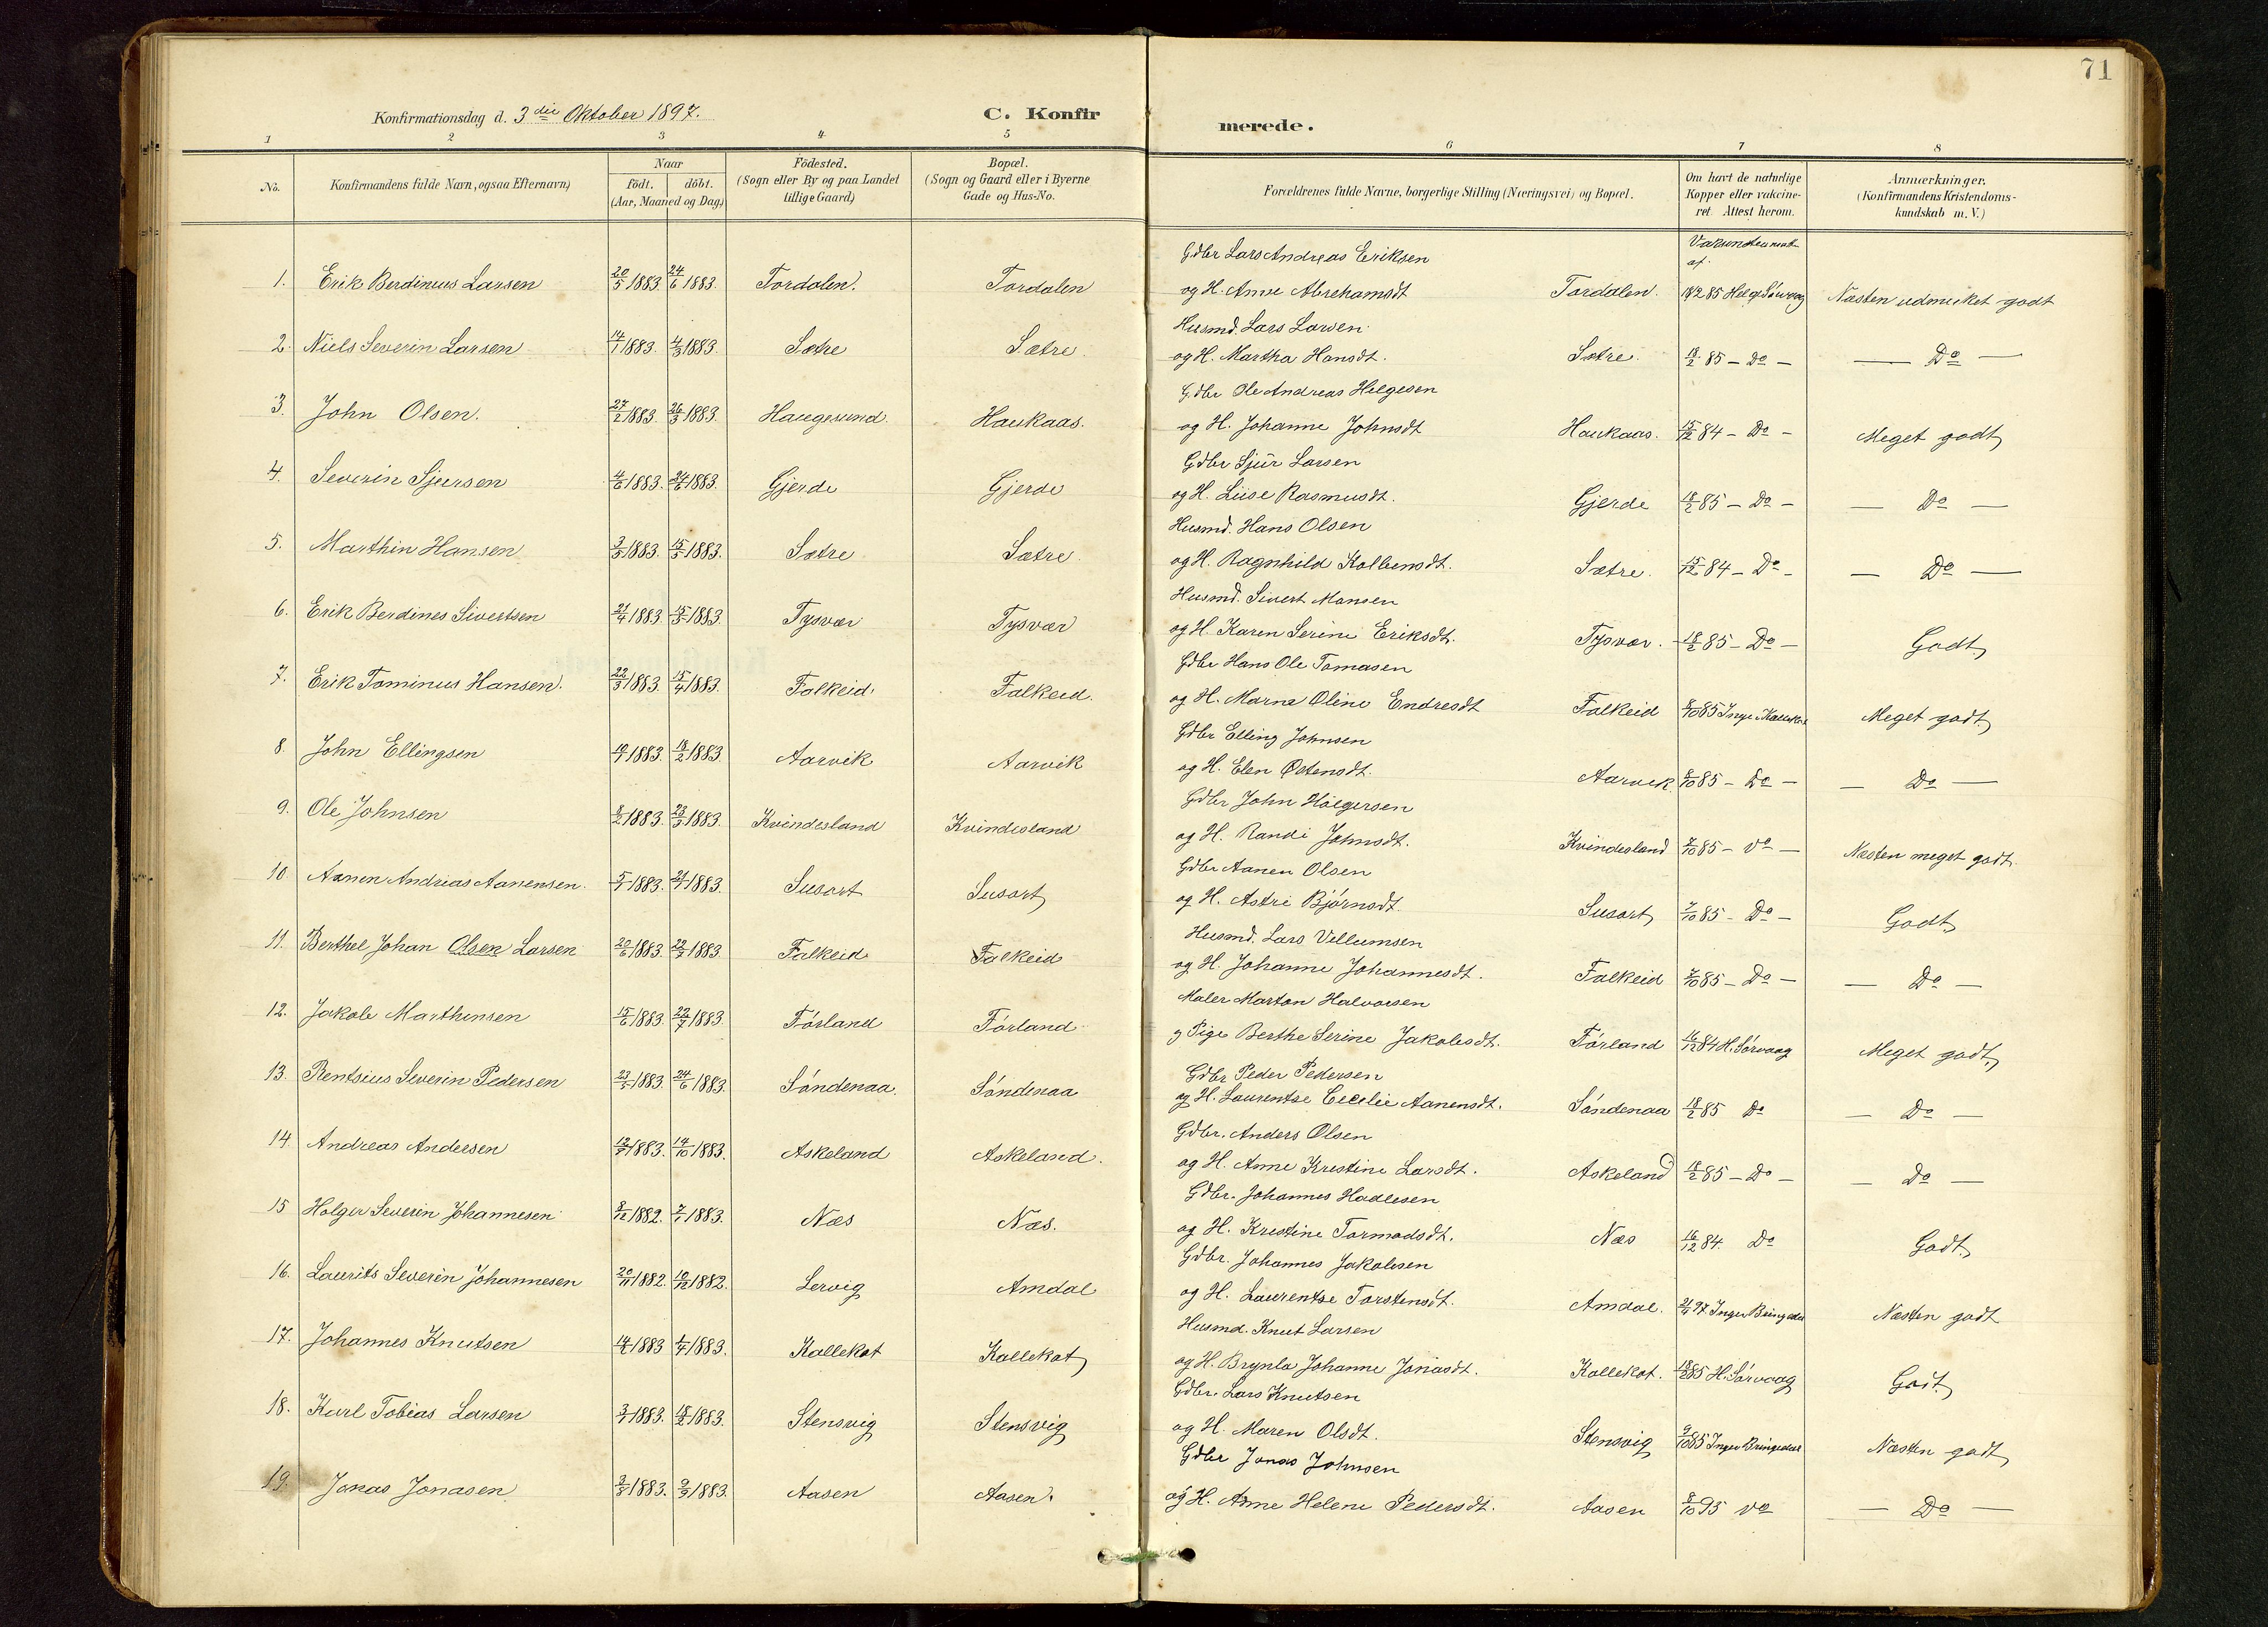 71
Konfirmationsdag d. 3die Oktober 1897.
C. Konfirmerede.
1 2 3 4 5 6 7 8
No.
Konfirmandens fulde Navn, ogsaa Efternavn)
Naar
født. døbt.
(Aar, Maaned og Dag)
Födested.
(Sogn eller By og paa Landet
tillige Gaard)
Bopæl.
(Sogn og Gaard eller i Byerne
Gade og Hus-No.
Forældrenes fulde Navne, borgerlige Stilling (Næringsvei) og Bopæl.
Om havt de naturlige
Kopper eller vakcine-
ret. Attest herom.
Anmærkninger.
(Konfirmandens Kristendoms-
kundskab m. V.)
Gdbr Lars Andreas Eriksen
af
1. Erik Berdinius Larsen 20/5 1883. 24/6 1883. Tordalen. Tordalen og H. Anne Abrahamsdt Tordalen. 18/2 85 Helge Sørvaag Næsten udmerket godt
Husmd. Lars Larsen
2. Niels Severin Larsen 14/1 1883. 4/3 1883. Sætre Sætre og H. Martha Hansdt. Sætre. 18/2 85 – Do – — Do —
Gdbr Ole Andreas Helgesen
3. John Olsen. 27/2 1883. 26/3 1883. Haugesund. Haukaas. og H. Johanne Johnsdt Haukaas. 15/12 84 – Do – Meget godt
Gdbr Sjur Larsen
4. Severin Sjursen 4/6 1883. 24/6 1883. Gjerde Gjerde og H. Liise Rasmusdt. Gjerde 18/2 85 – Do – — Do —
Husmd. Hans Olsen
5. Marthin Hansen 3/5 1883. 15/5 1883. Sætre Sætre og H. Ragnhild Kolbensdt. Sætre. 15/12 84 – Do – — Do —
Husmd. Sivert Monsen
6. Erik Berdines Sivertsen 21/4 1883. 15/5 1883. Tysvær Tysvær og H. Karen Serine Eriksdt. Tysvær. 18/2 85 – Do – Godt
Gdbr Hans Ole Tomasen
7. Erik Tominus Hansen. 22/3 1883. 15/4 1883. Falkeid. Falkeid. og H. Marna Oline Endresdt Falkeid 8/10 85 Meget godt
Gdbr Elling Johnsen
8. John Ellingsen 1883. 18/2 1883. Aarvik Aarvik og H. Elen Østensdt. Aarvik 8/10 85 – Do – — Do —
Gdbr John Holgersen
9. Ole Johnsen 8/2 1883. 23/3 1883. Kvindesland Kvindesland og H. Randi Johnsdt. Kvindesland 7/10 85 – Do – Næsten meget godt.
Gdbr Aanen Olsen
10 Aanen Andreas Aanensen. 5/7 1883. 1883. Susort Susort og H. Astri Bjørnsdt. Susort 7/10 85 – Do – Godt
Husmd. Lars Villumsen
11. Berthel Johan Olsen Larsen 20/6 1883. 1883. Falkeid Falkeid og H. Johanne Johannesdt. Falkeid 7/10 85 – Do – — Do —
Maler Morton Halvorsen
12. Jakob Marthinsen 15/6 1883. 22/7 1883. Førland Førland og Pige Berthe Serine Jakobsdt. Førland 16/12 84 H. Sørvaag Meget godt
Gdbr Peder Pedersen
13. Rentsius Severin Pedersen 23/5 1883. 24/6 1883. Søndenaa. Søndenaa og H. Laurentse Cecelie Aanensdt. Søndenaa 18/2 85 Do — Do —
Gdbr. Anders Olsen
14. Andreas Andersen 1883. 14/10 1883. Askeland Askeland. og H. Anne Kristine Larsdt. Askeland 18/2 85 – Do – — Do —
Gdbr. Johannes Hadlesen
15 Holger Severin Johannesen 3/12 1882. 7/1 1883. Næs Næs. og H. Kristine Tormodsdt. Næs 16/12 84. Do Godt
Gdbr. Johannes Jakobsen
16. Laurits Severin Johannesen 20/11 1882. 10/12 1882. Lervig Amdal og H. Laurentse Torstensdt. Amdal. 97 Inger Bringedal Næsten godt
Husmd. Knut Larsen
17. Johannes Knutsen 1883 1/4 1883. Kallekot Kallekot og H. Brynla Johanne Jonasdt. Kallekot. 18/2 85 H. Sørvaag Godt
Gdbr. Lars Knutsen
18. Karl Tobias Larsen 3/1 1883. 18/2 1883. Stensvig Stensvig og H. Maren Olsdt. Stensvig 9/10 85 Inger Bringedal Næsten godt
Gdbr Jonas Johnsen
19. Jonas Jonasen 3/8 1883. 9/9 1883. Aasen Aasen. og H. Anne Helene Pedersdt. Aasen 8/10 95 Do — Do —